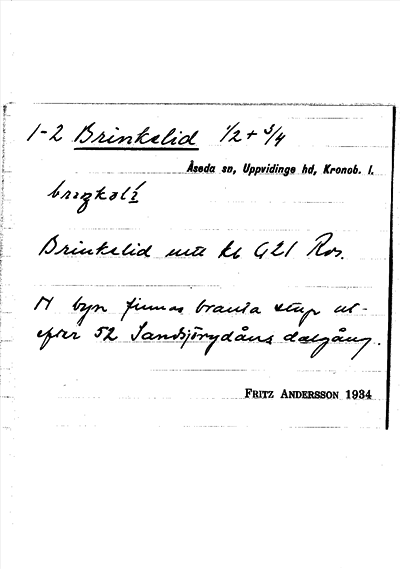 1-2 Brinkelid 1/2 + 3/4
Åseda sn, Uppvidinge hd, Kronob. l.
Brinkelid
N byn finnas branta stup ut-
efter 52 Sandsjörydåns dalgång.
FRITZ ANDERSSON 1934